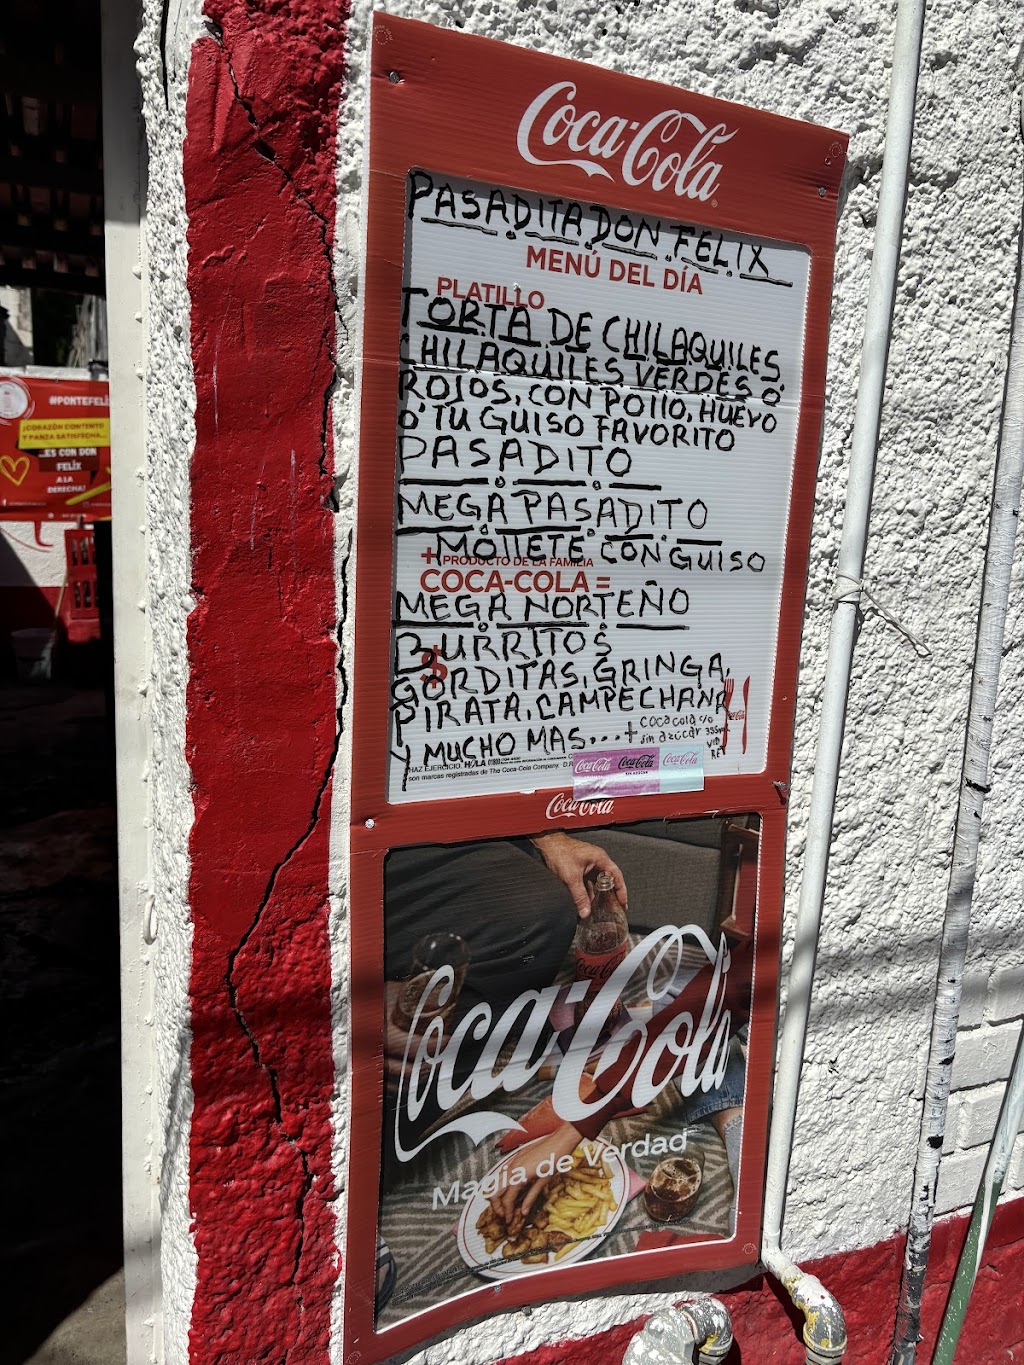 Coca-Cola
PASADITA DON FELIX
MENÚ DEL DÍA
PLATILLO
TORTA DE CHILAQUILES
CHILAQUILES VERDES O
ROJOS, CON POLLO, HUEVO
O TU GUISO FAVORITO
PASADITO
MEGA PASADITO
MOLLETE CON GUISO
+ PRODUCTO DE LA FAMILIA
COCA-COLA =
MEGA NORTEÑO
BURRITOS
$
GORDITAS, GRINGA,
PIRATA, CAMPECHANA
Y MUCHO MAS...+ coca cola %
sin azúcar 355ml
VID
RE
Coca-Cola
HAZ EJERCICIO.
son marcas registradas de The Coca-Cola Company.
Coca-Cola Coca-Cola Coca-Cola
SIN AZÚCAR
Coca-Cola
Coca-Cola
Coca-Cola
Magia de Verdad
#PONTEFELI
¡CORAZÓN CONTENTO
Y PANZA SATISFECHA...
..ES CON DON
FELÍX
A LA
DERECHA!